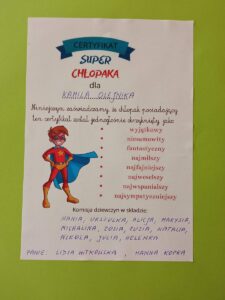 CERTYFIKAT
SUPER
CHŁOPAKA
dla
KAMILA OLEJNIKA
Niniejszym zaświadczamy, że chłopak posiadający
ten certyfikat został jednogłośnie okrzyknięty jako
wyjątkowy
niesamowity
fantastyczny
najmilszy
najfajniejszy
najweselszy
najwspanialszy
najsympatyczniejszy
Komisja dziewczyn w składzie:
HANIA, URSZULKA, ALICJA, MARYSIA,
MICHALINA, ZOSIA, ZUZIA, NATALIA,
NIKOLA, JULIA, HELENKA
PANIE LIDIA WITKOWSKA, HANNA KOPKA